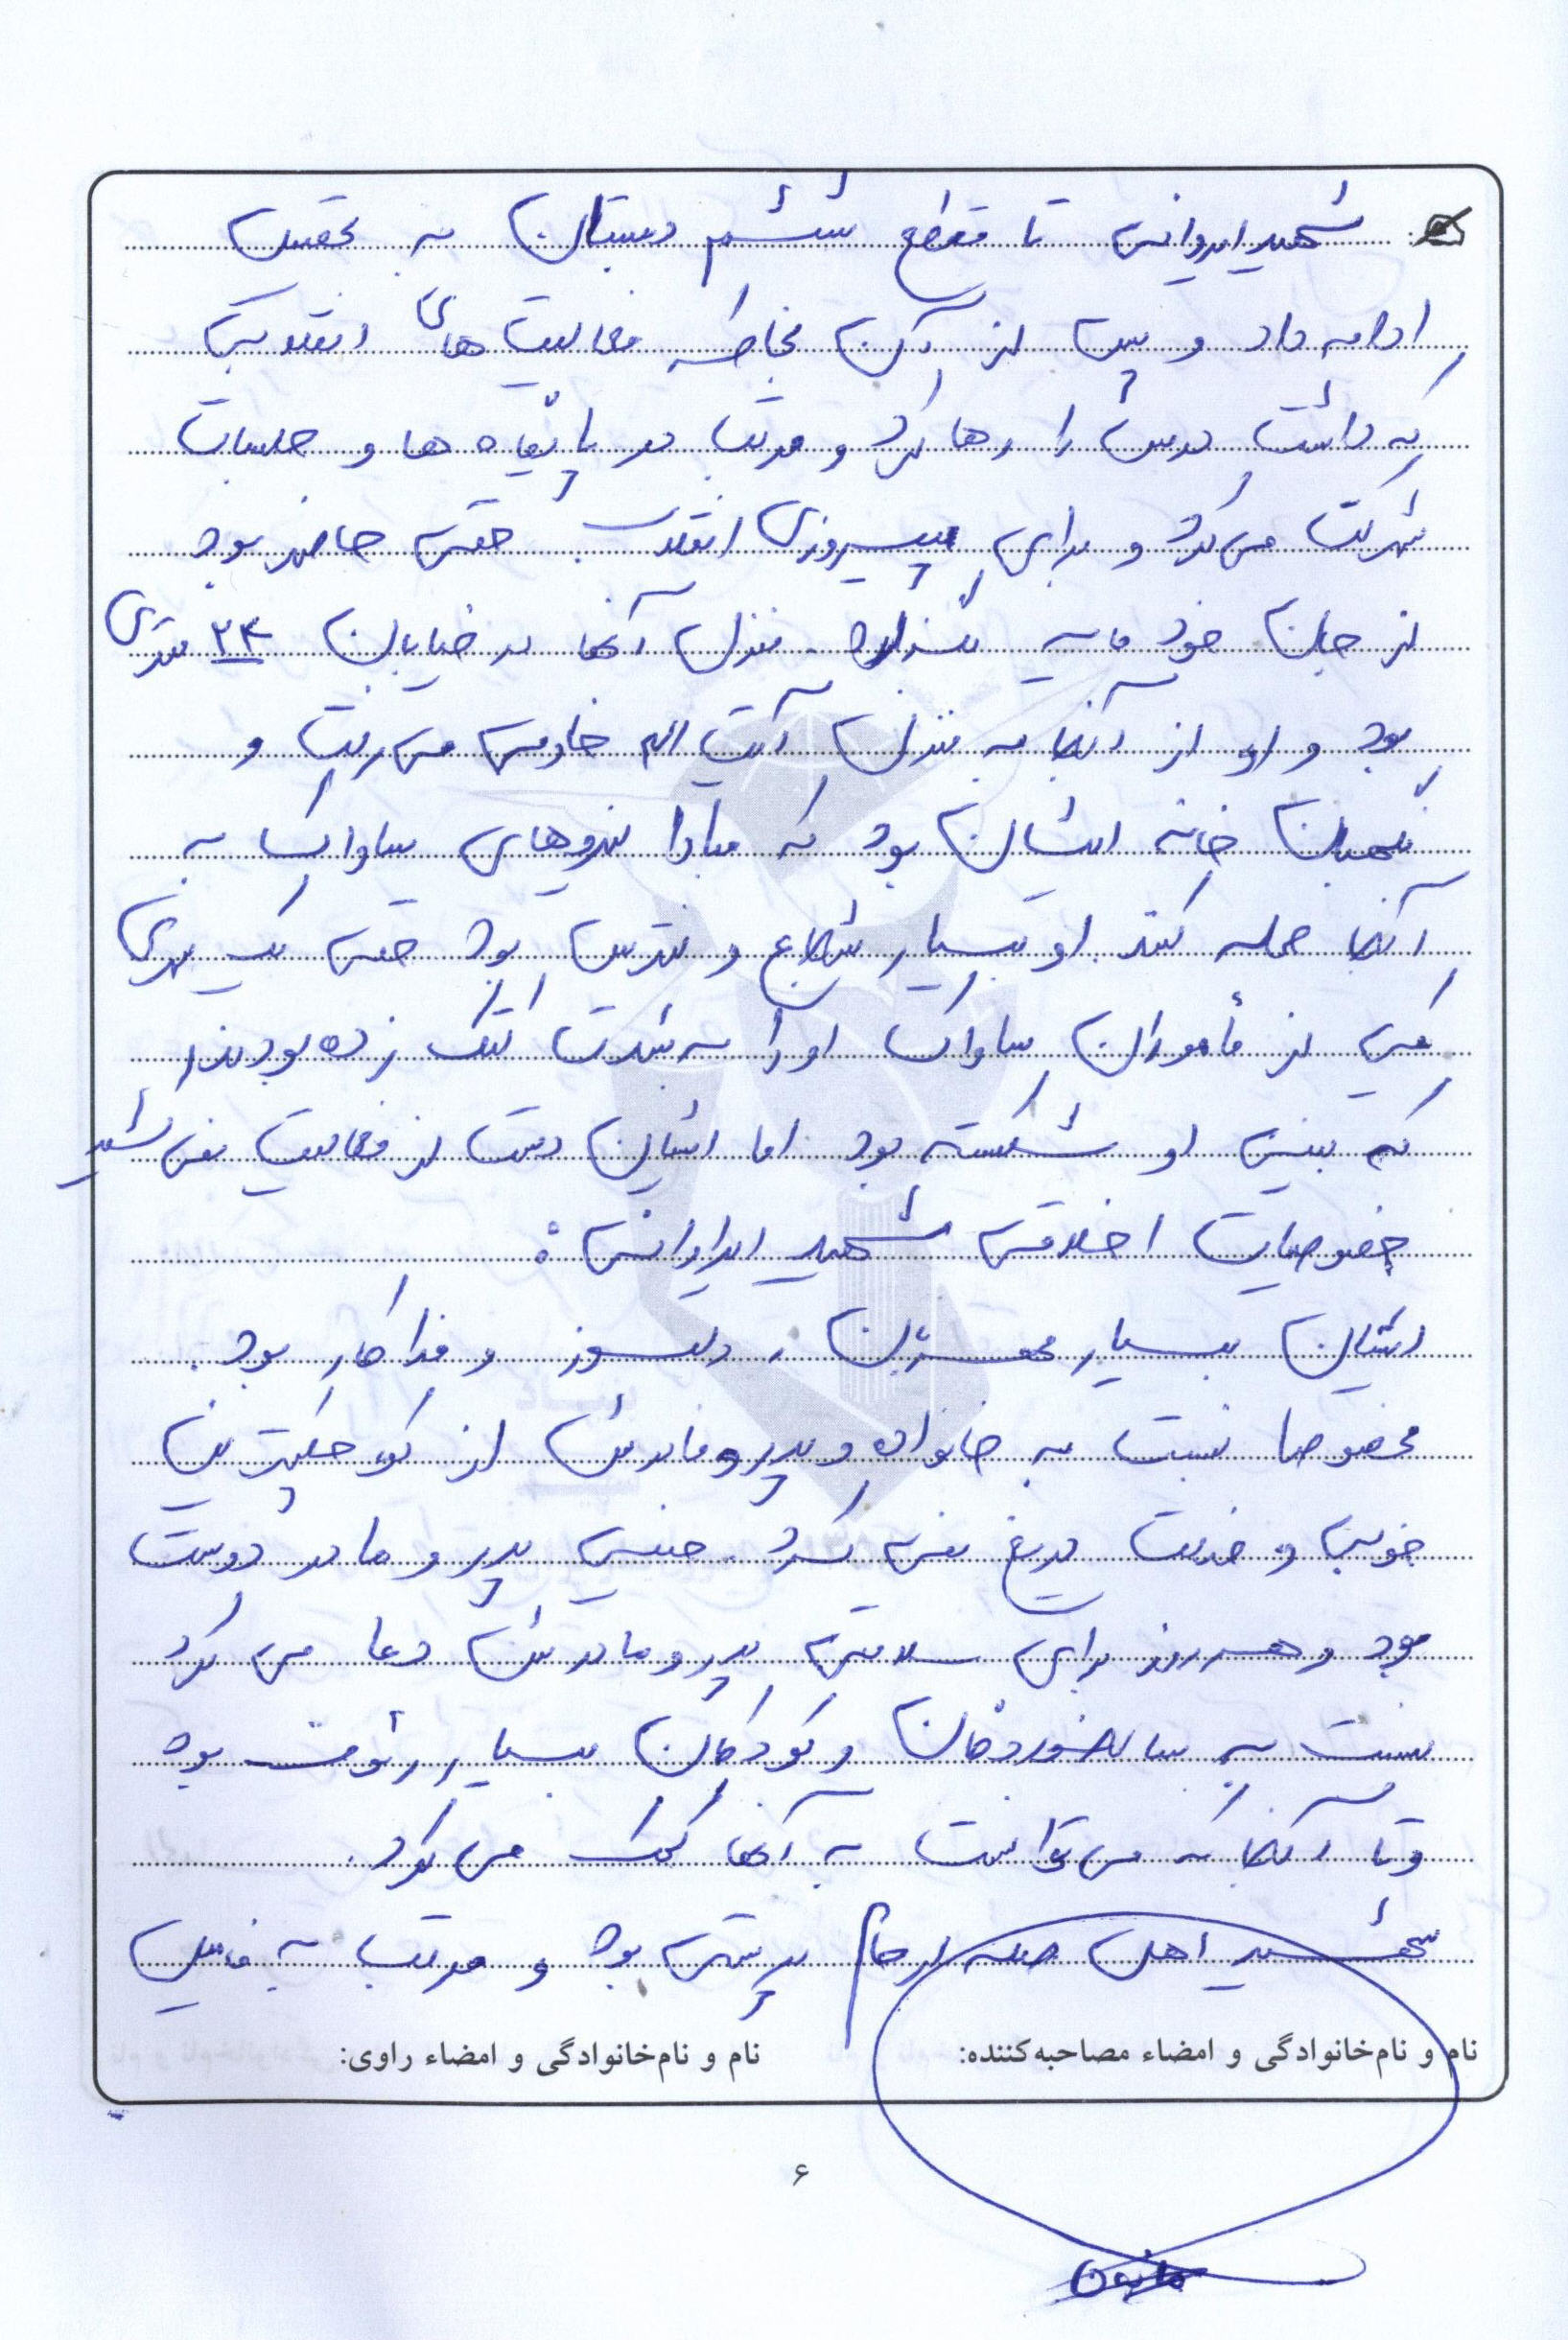 شهید ایروانی تا مقطع ششم دبستان به تحصیل
ادامه داد و پس از آن بخاطر فعالیت های انقلابی
که داشت درس را رها کرد و مرتب در پایگاه ها و جلسات
شرکت می کرد و برای پیروزی انقلاب حتی حاضر بود
از جان خود مایه بگذارد. منزل آنها در خیابان ۲۴ متری
بود و او از آنجا به منزل آیت اله خادمی می رفت و
نگهبان خانه ایشان بود که مبادا نیروهای ساواک به
آنجا حمله کنند. او بسیار شجاع و نترس بود حتی یک سری
یکی از مأموران ساواک او را به شدت کتک زده بودند
که بینی او شکسته بود اما ایشان دست از فعالیت نمی کشید
خصوصیات اخلاقی شهید ایروانی :
ایشان بسیار مهربان، دلسوز و فداکار بود.
مخصوصا نسبت به خانواده و پدر و مادرش از کوچکترین
خوبی و خدمت دریغ نمی کرد. خیلی پدر و مادر دوست
بود و هر روز برای سلامتی پدر و مادرش دعا می کرد
نسبت به سالخوردگان و کودکان بسیار رئوف بود
و تا آنجا که می توانست به آنها کمک می کرد.
شهید اهل صله ارحام بود و مرتب به فامیل
نام و نام‌خانوادگی و امضاء مصاحبه‌کننده:
نام و نام‌خانوادگی و امضاء راوی:
۶